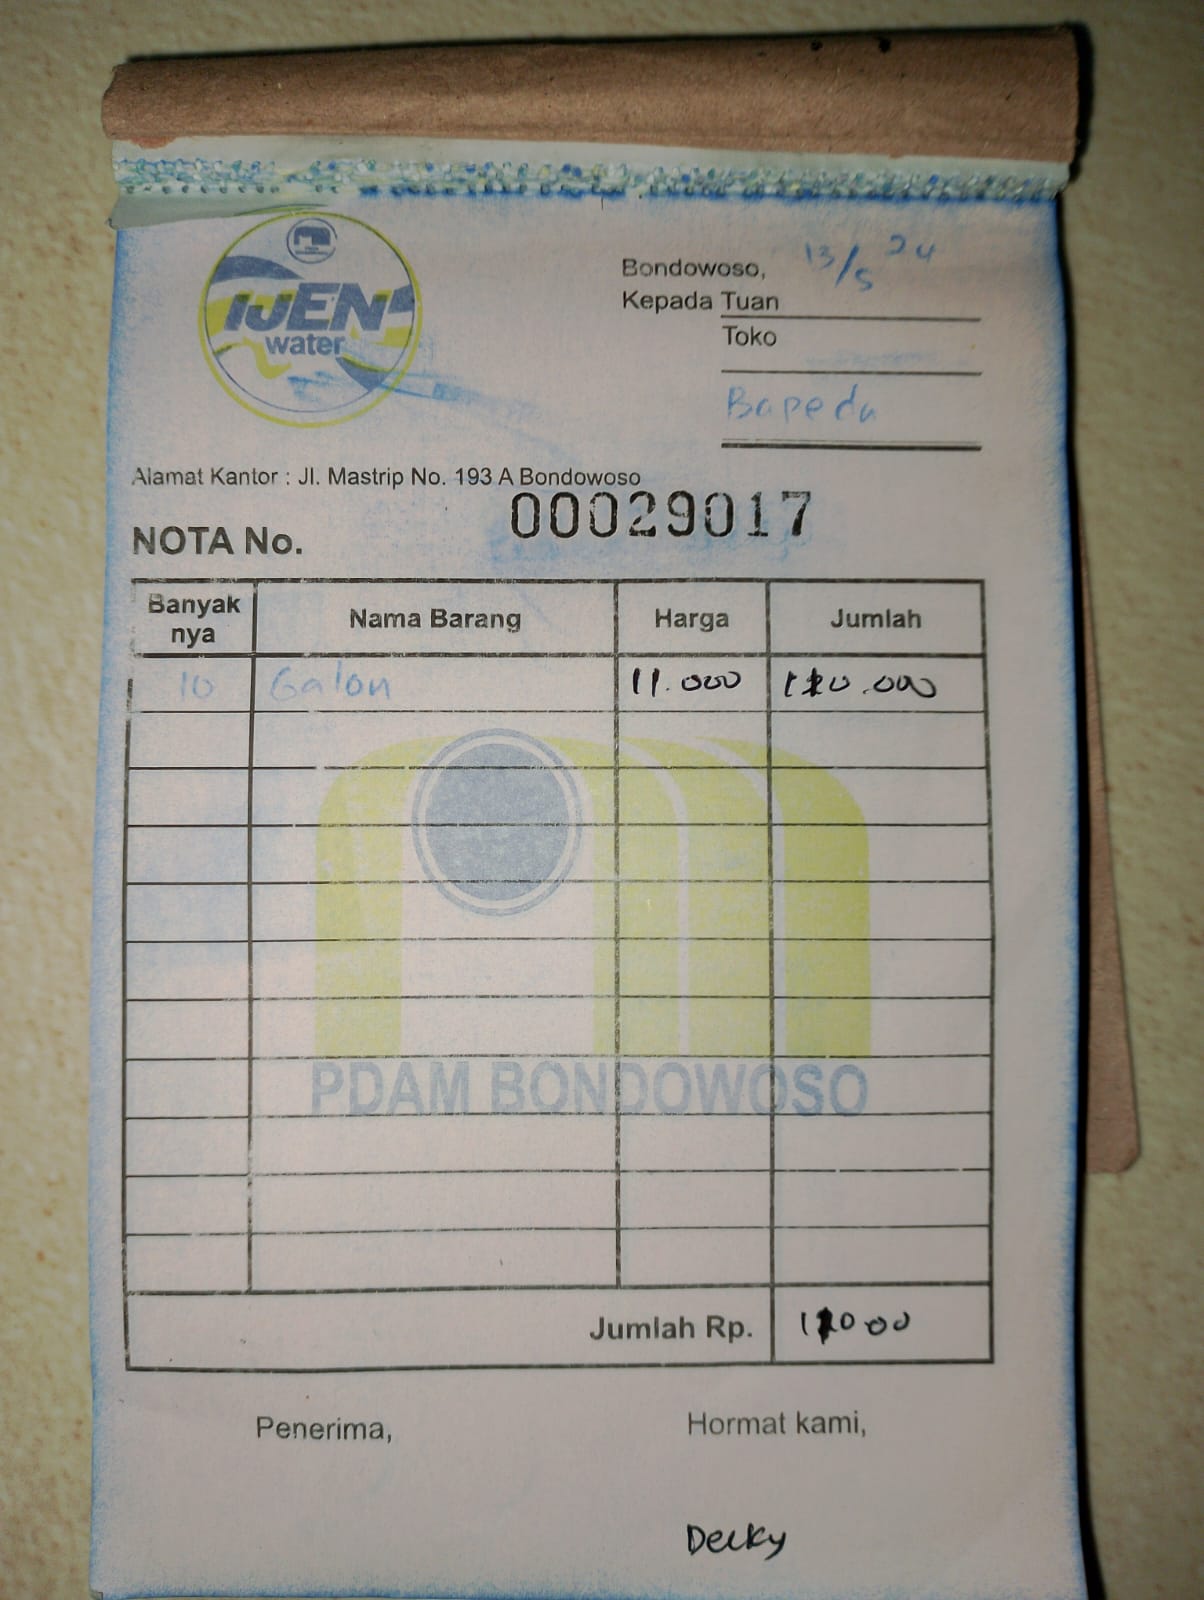 IJEN
water
Bondowoso, 13/5 24
Kepada Tuan
Toko
Bapeda
Alamat Kantor : Jl. Mastrip No. 193 A Bondowoso
NOTA No. 00029017
Banyak nya Nama Barang Harga Jumlah
10 Galon 11.000 110.000
PDAM BONDOWOSO
Jumlah Rp. 11000
Penerima, Hormat kami,
Decky